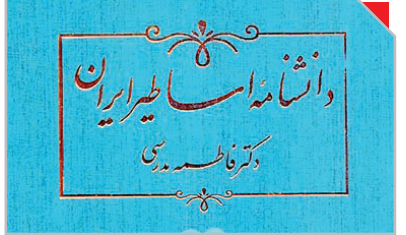 دانشنامه اساطیر ایران
دکتر فاطمه مدرسی